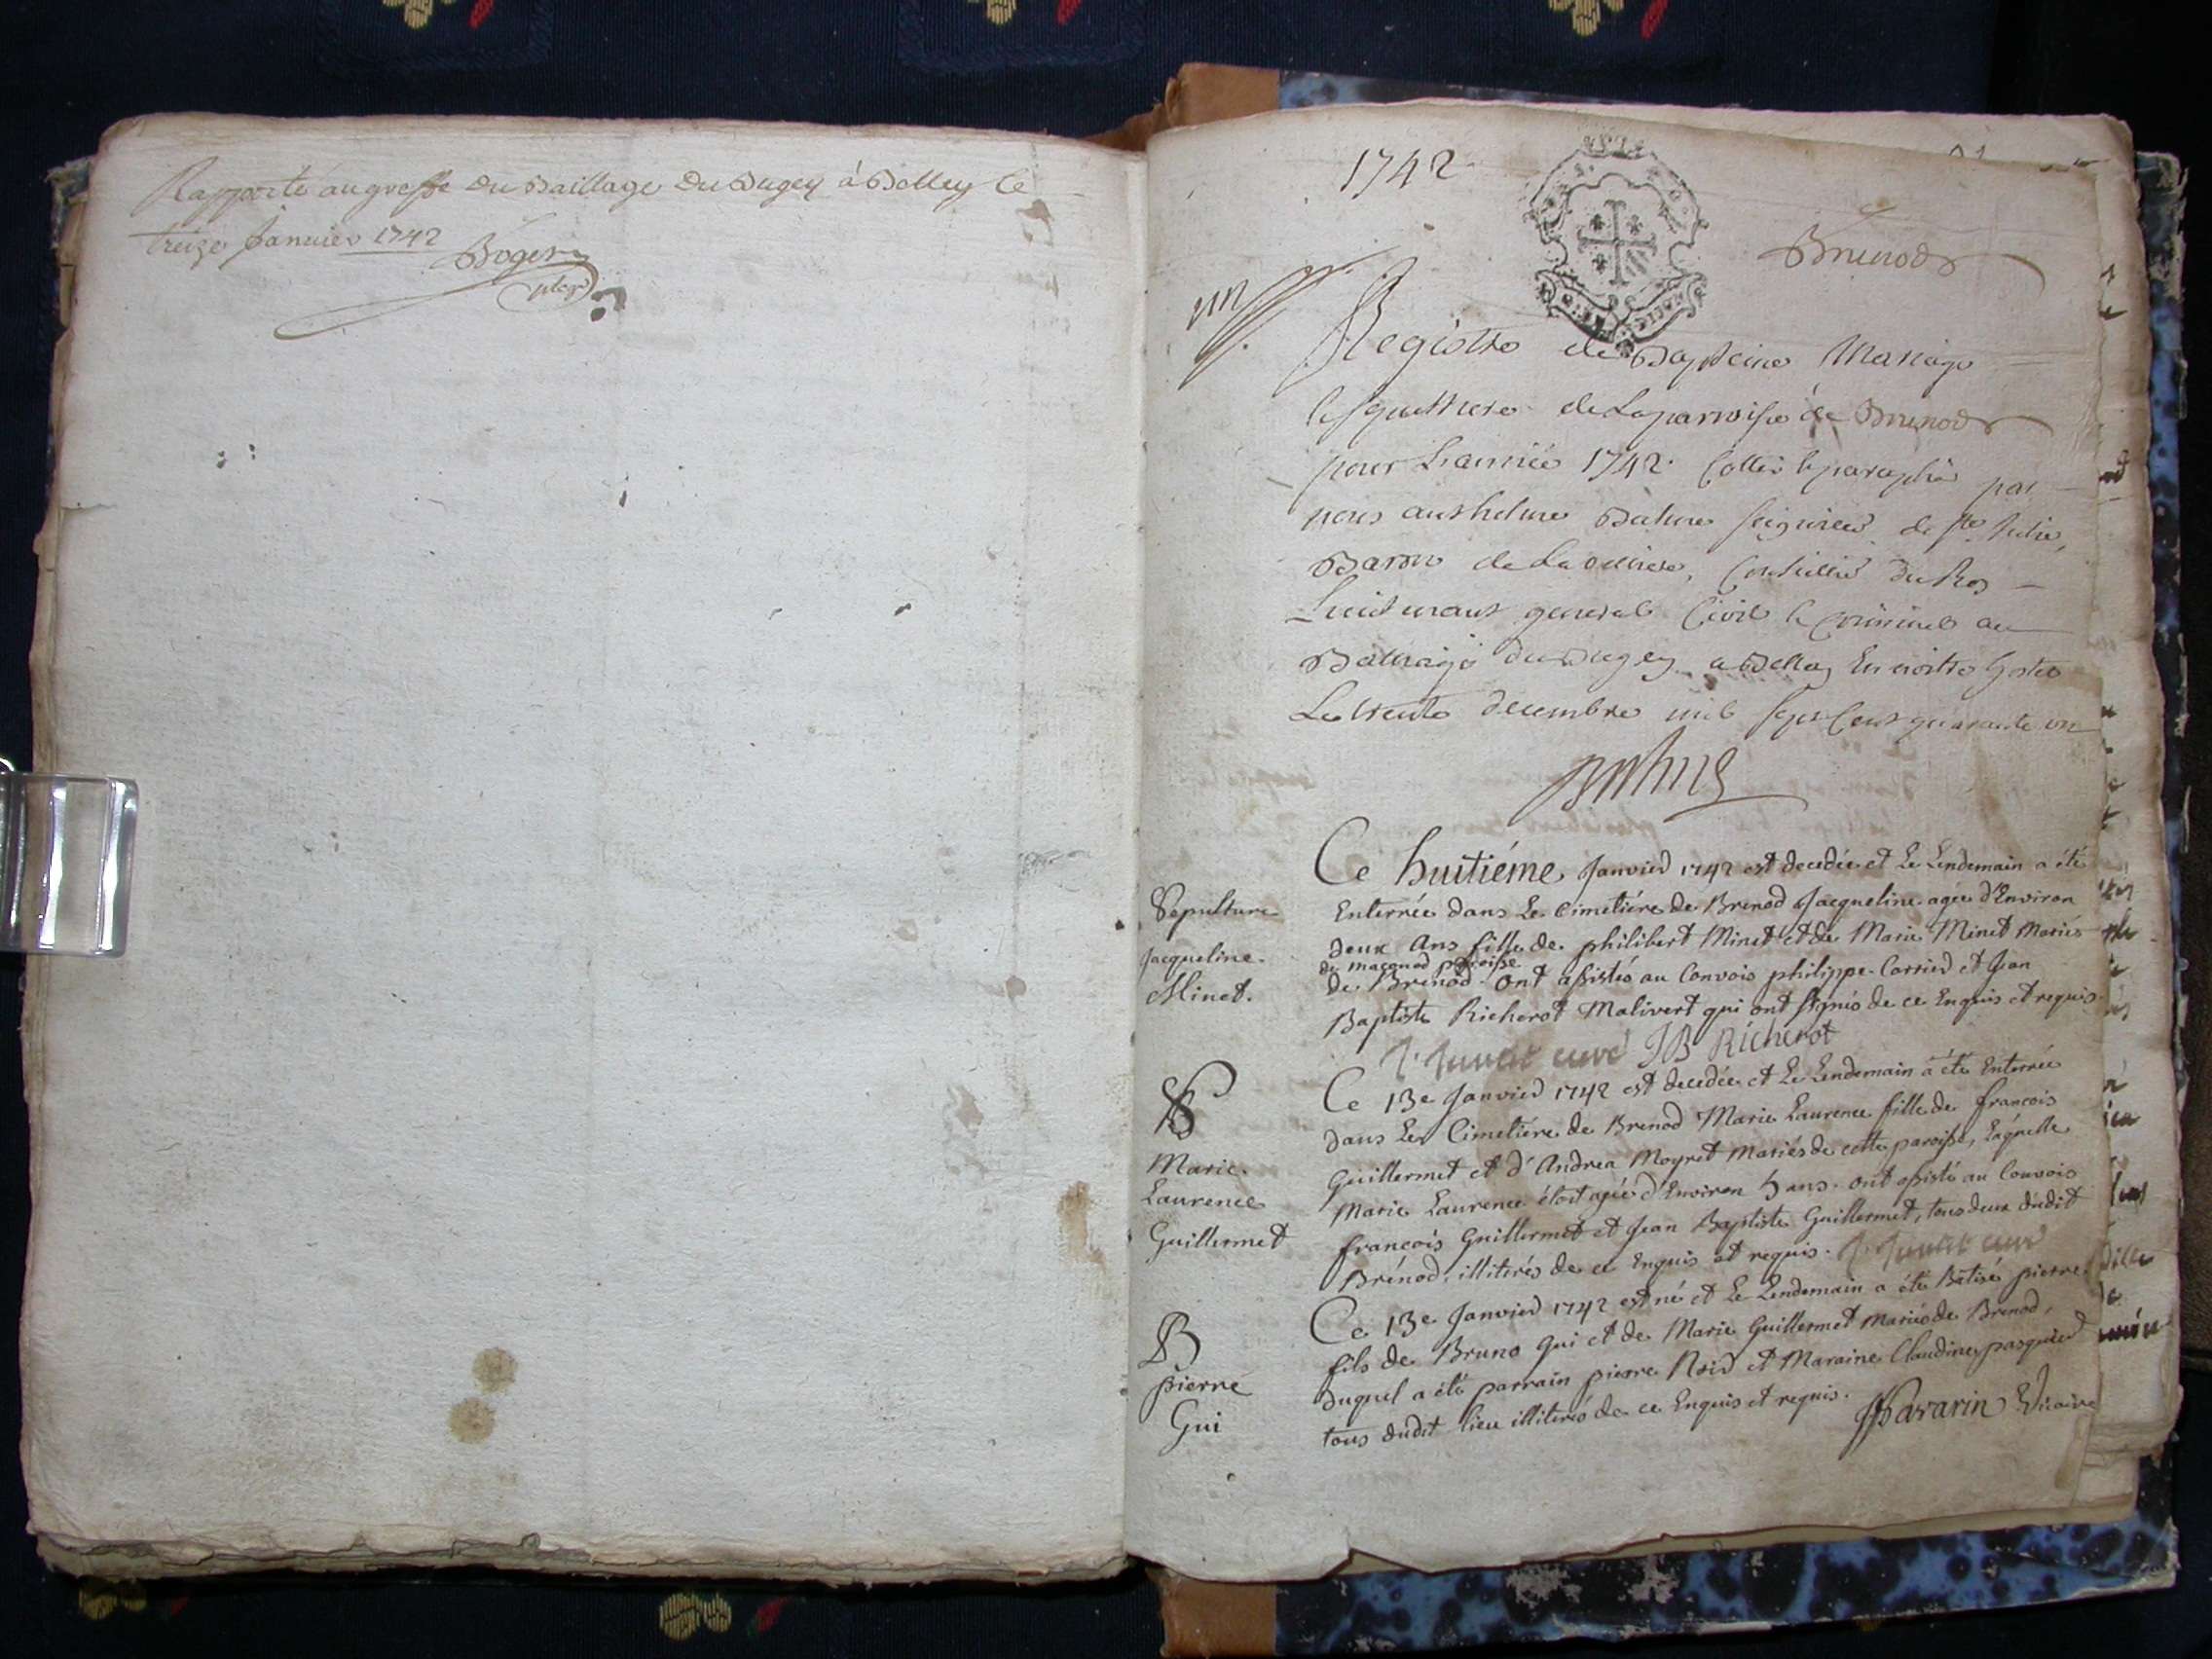 Rapporté au greffe du Baillage du Bugey à Belley le
treize Janvier 1742 Boger
1742
Brenod
un
Registre de Baptême Mariage
et sepulture de La parroisse de Brenod
pour L'année 1742. Cotté et paraphé par
nous anthelme seigneur de Ste Julie,
Baron de Conseiller du Roy
Lieutenant general Civil et Criminel au
Balliage du Bugey a Belley En nostre hostel
Le trente decembre mil sept Cent quarante un
Ce huitiéme Janvier 1742 est decedée et Le Lendemain a été
Enterrée dans Le Cimetiére de Brenod Jacqueline agée d'Environ
deux Ans fille de philibert Minet et de Marie Minet Mariés
de macconod paroisse
de Brenod. Ont assistés au Convois philippe Carrier et Jean
Baptiste Richerot Malivert qui ont signés de ce Enquis et requis.
curé JB Richerot
Sepulture
Jacqueline
Minet.
Ce 13e Janvier 1742 est decedée et Le Lendemain a été Enterrée
dans Le Cimetiére de Brenod Marie Laurence fille de francois
Guillermet et d'Andrea Moyret Mariés de cette paroisse, Laquelle
Marie Laurence étoit agée d'Environ 5 ans. ont assisté au Convois
francois Guillermet et Jean Baptiste Guillermet, tous deux dudit
Brénod, illiterés de ce Enquis et requis. curé
S
Marie
Laurence
Guillermet
Ce 13e Janvier 1742 est né et Le Lendemain a été Batisé pierre
fils de Bruno Gui et de Marie Guillermet mariés de Brenod,
duquel a été parrain pierre Noir et Maraine Claudine pasquier
tous dudit lieu illiterés de ce Enquis et requis. Savarin Vicaire
B
pierre
Gui